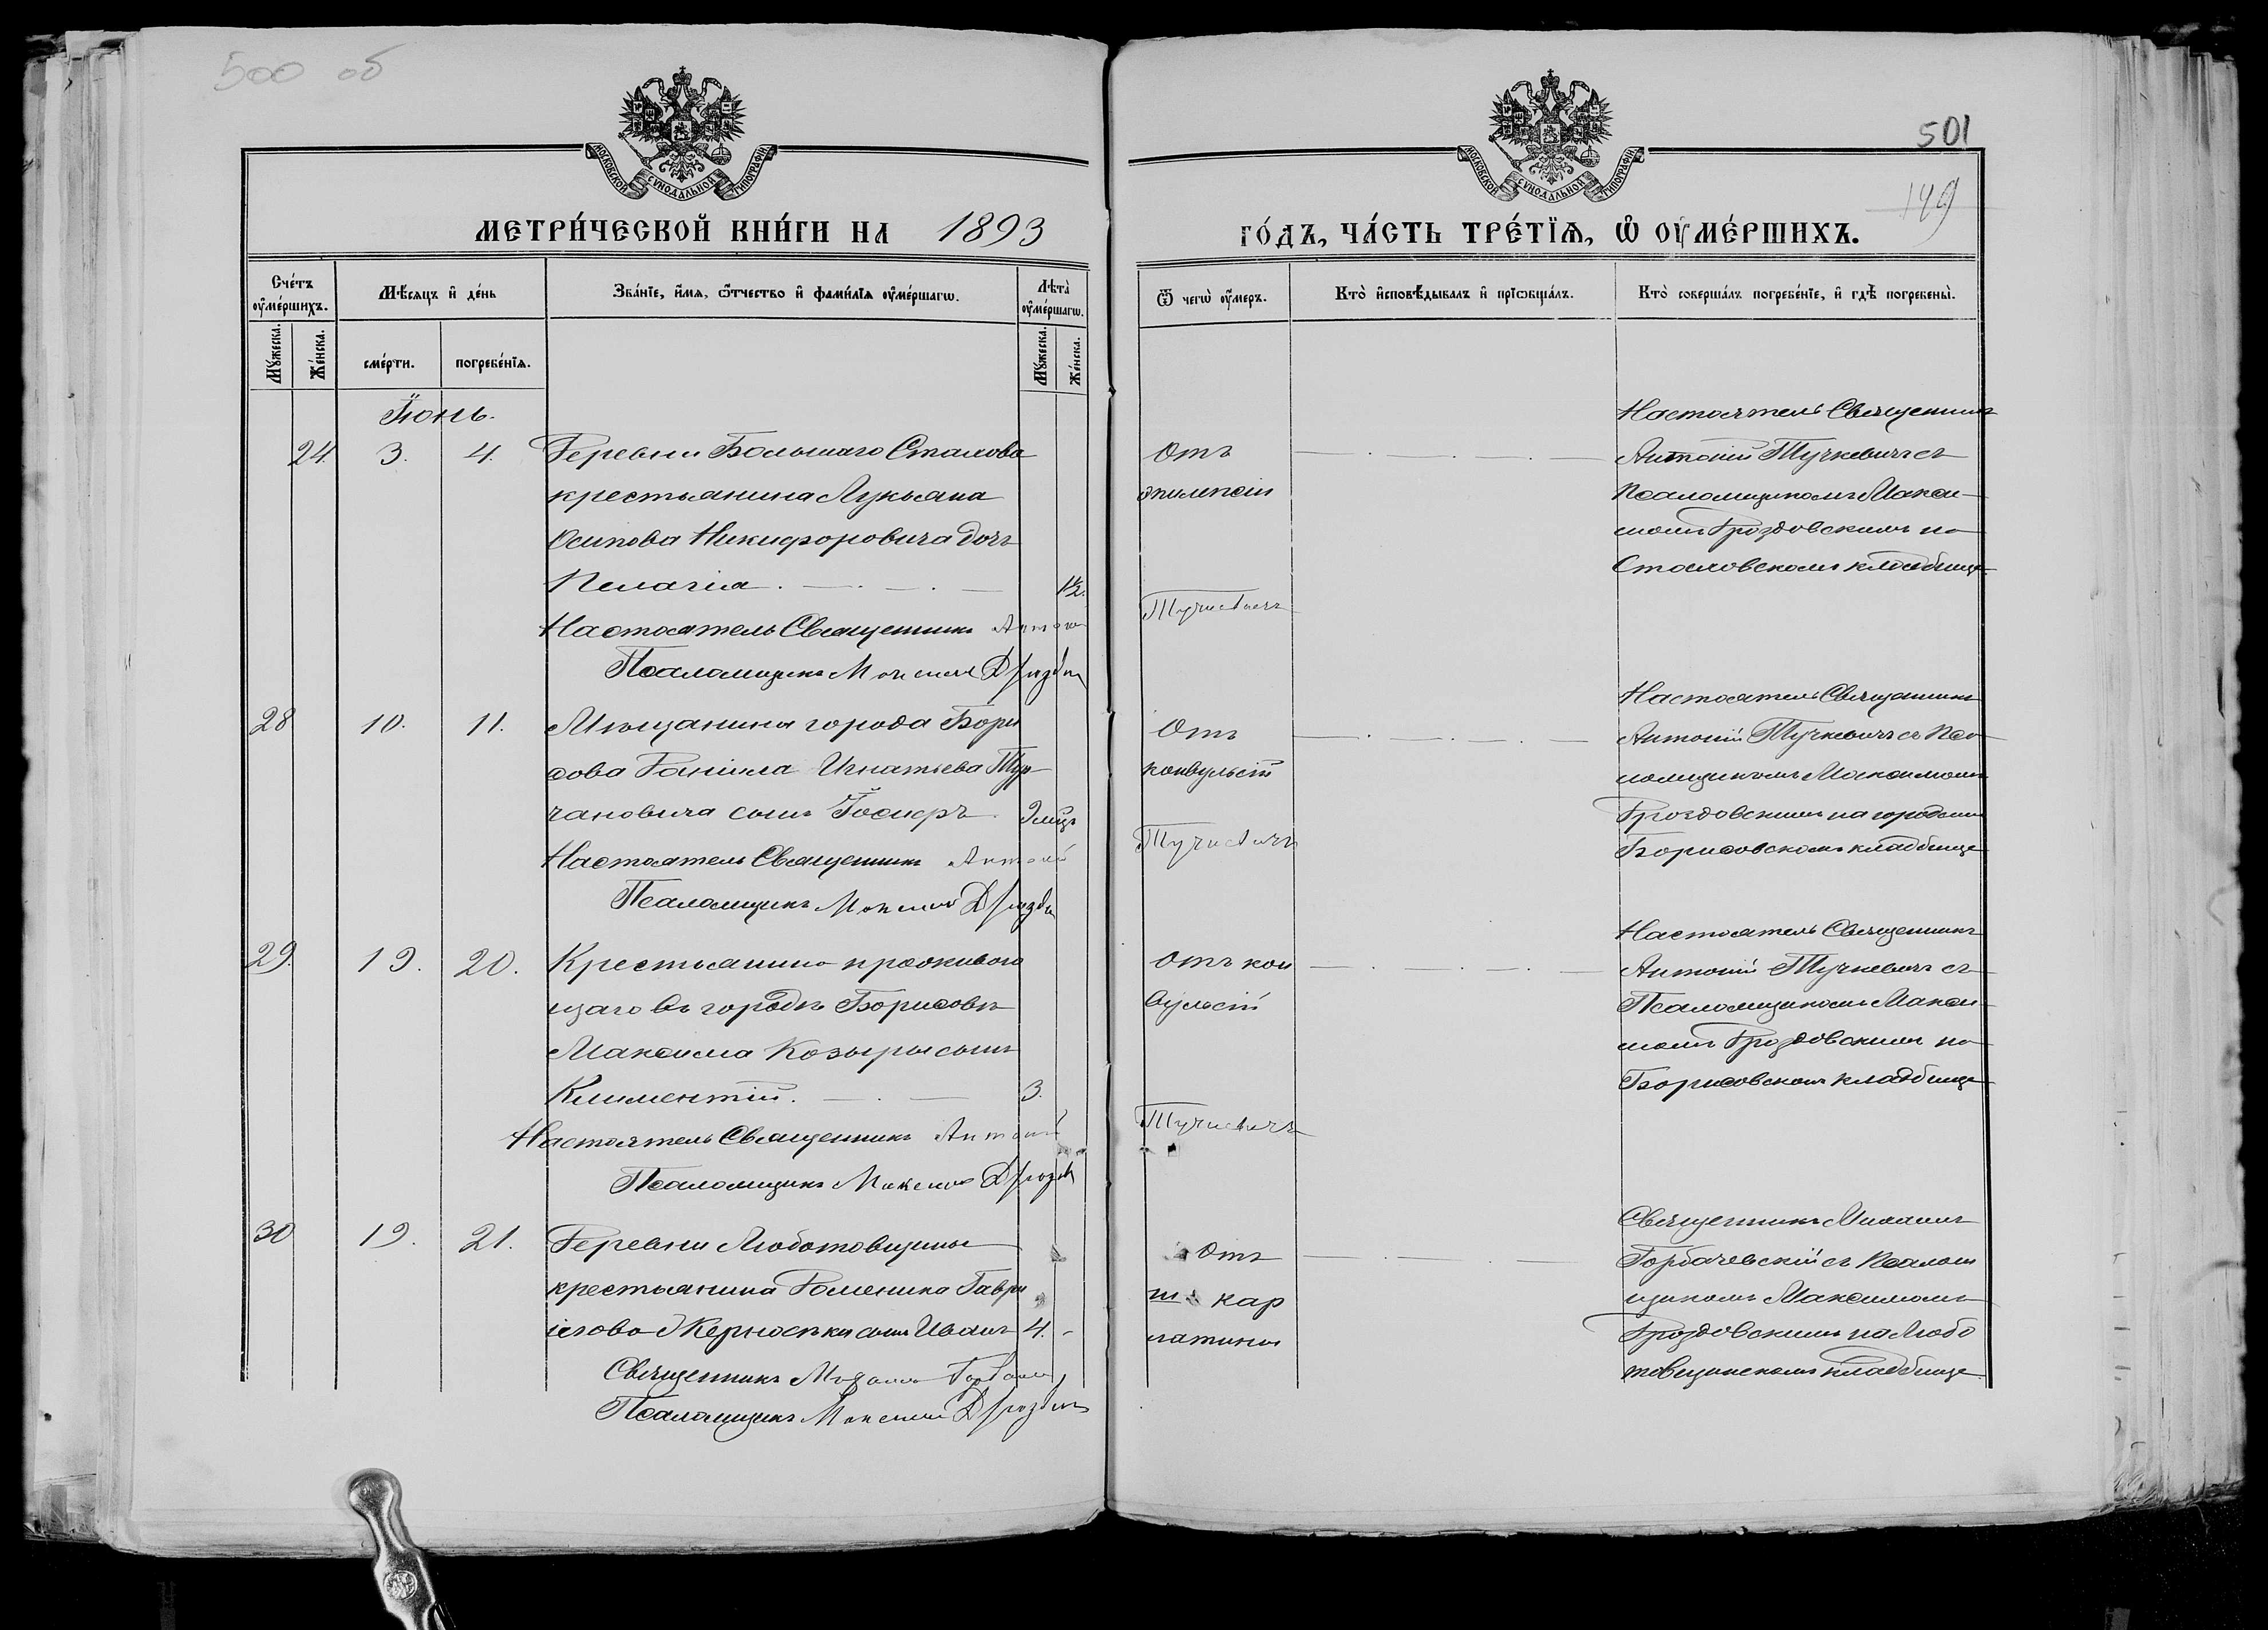 500 об
МОСКОВСКОЙ СѴНОДАЛЬНОЙ ТИПОГРАФІИ
МЕТРИ́ЧЕСКОЙ КНИ́ГИ НА 1893
Сче́тъ ᲂу҆ме́ршихъ.
Мѣ́сяцъ и҆ де́нь
Зва́нїе, и҆́мя, ѻ҆́тчество и҆ фами́лїя ᲂу҆ме́ршагѡ.
Лѣта̀ ᲂу҆ме́ршагѡ.
Мꙋ́жеска.
Же́нска.
сме́рти.
погребе́нїя.
Мꙋ́жеска.
Же́нска.
Іюнь.
24. 3. 4. Деревни Большаго Стахова
крестьянина Лукьяна
Осипова Никифоровича дочь
Пелагія. 1½.
Настоятель Священникъ Антоній
Псаломщикъ Максимъ Дрозд
28 10. 11. Мѣщанина города Бори
сова Даніила Игнатьева Тур-
чановича сынъ Іосифъ.
Настоятель Священникъ Антоній
Псаломщикъ Максимъ Дрозд
29. 19. 20. Крестьянина проживаю
щаго въ городѣ Борисовѣ
Максима Козыры сынъ
Климентій. 3.
Настоятель Священникъ Антоній
Псаломщикъ Максимъ Дрозд
30 19. 21. Деревни Любатовщины
крестьянина Доминика Гаври
іилова сынъ Иванъ 4.
Священникъ Михаилъ
Псаломщикъ Максимъ Дрозд
501
149
МОСКОВСКОЙ СѴНОДАЛЬНОЙ ТИПОГРАФІИ
ГО́ДЪ, ЧА́СТЬ ТРЕ́ТЇѦ, Ѡ҆ ОУ҆МЕ́РШИХЪ.
Ѿ чегѡ̀ ᲂу҆́меръ.
Кто̀ и҆сповѣ́дывалъ и҆ прїѡбща́лъ.
Кто̀ соверша́лъ погребе́нїе, и҆ гдѣ̀ погребены̀.
Отъ
эпилепсіи
Тучкевичъ
Настоятель Священникъ
Антоній Тучкевичъ съ
Псаломщикомъ Макси-
момъ Дроздовскимъ на
Стаховскомъ кладбищѣ.
Отъ
конвульсій
Тучкевичъ
Настоятель Священникъ
Антоній Тучкевичъ съ Пса
ломщикомъ Максимомъ
Дроздовскимъ на городскомъ
Борисовскомъ кладбищѣ
Отъ кон
вульсій
Тучкевичъ
Настоятель Священникъ
Антоній Тучкевичъ съ
Псаломщикомъ Макси-
момъ Дроздовскимъ на
Борисовскомъ кладбищѣ
Отъ
скар
латины
Священникъ Михаилъ
Горбачевскій съ Псалом
щикомъ Максимомъ
Дроздовскимъ на Любо
товщинскомъ кладбищѣ.